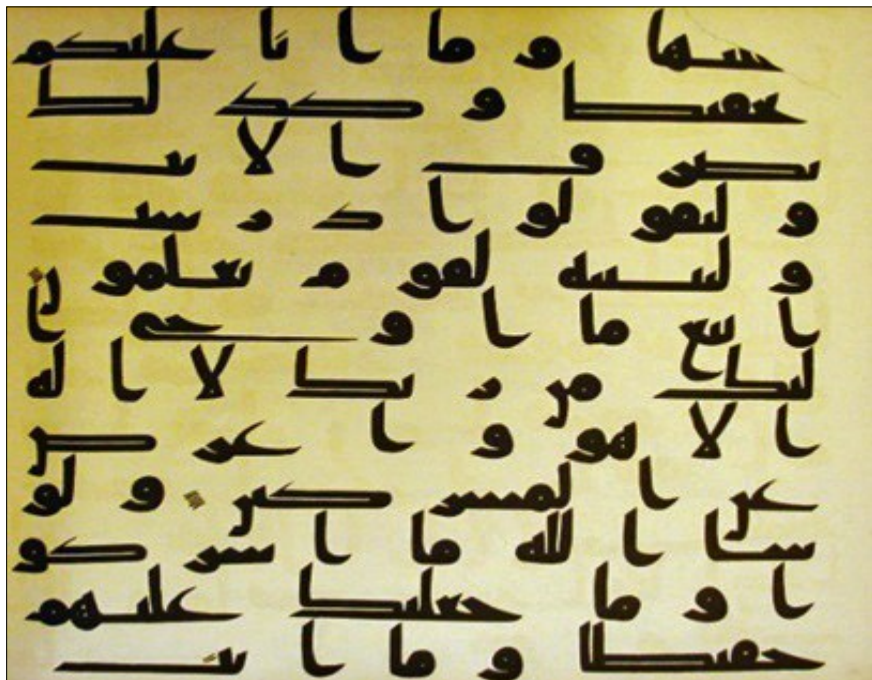 يها وما انا عليكم
بحفيظ وكذلك
نصرف الايت
وليقولوا درست
ولنبينه لقوم يعلمون
اتبع ما اوحي ا
ليك من ربك لا اله
الا هو واعرض
عن المشركين ولو
شا الله ما اشركو
ا وما جعلنك عليهم
حفيظا وما انت